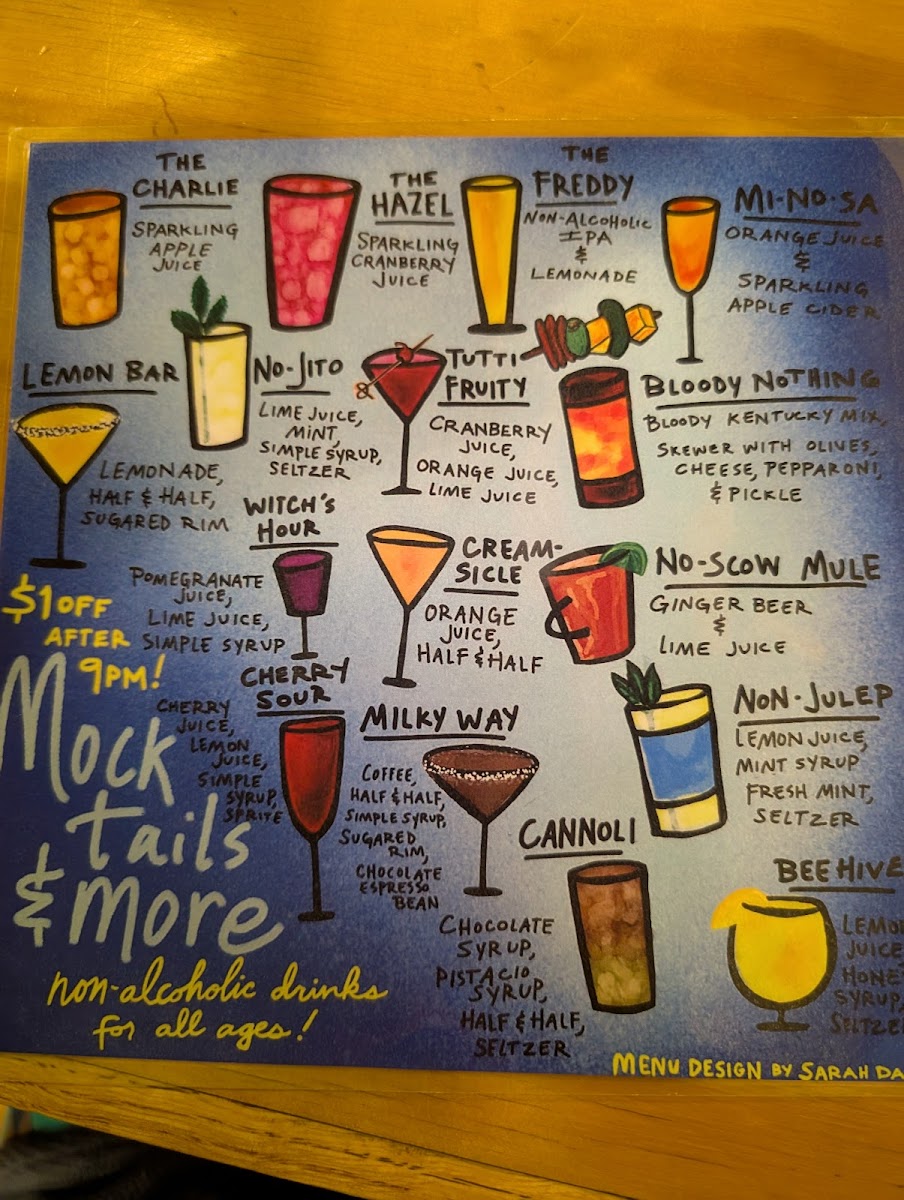 THE
CHARLIE
SPARKLING
APPLE
JUICE
THE
HAZEL
SPARKLING
CRANBERRY
JUICE
THE
FREDDY
NON-ALCOHOLIC
IPA
&
LEMONADE
MI-NO-SA
ORANGE JUICE
&
SPARKLING
APPLE CIDER
LEMON BAR
LEMONADE,
HALF & HALF,
SUGARED RIM
NO-JITO
LIME JUICE,
MINT,
SIMPLE SYRUP,
SELTZER
TUTTI
FRUITY
CRANBERRY
JUICE,
ORANGE JUICE,
LIME JUICE
BLOODY NOTHING
BLOODY KENTUCKY MIX,
SKEWER WITH OLIVES,
CHEESE, PEPPARONI,
& PICKLE
WITCH'S
HOUR
POMEGRANATE
JUICE,
LIME JUICE,
SIMPLE SYRUP
CREAM-
SICLE
ORANGE
JUICE,
HALF & HALF
NO-SCOW MULE
GINGER BEER
&
LIME JUICE
$1 OFF
AFTER
9PM!
CHERRY
SOUR
CHERRY
JUICE,
LEMON
JUICE,
SIMPLE
SYRUP,
SPRITE
MILKY WAY
COFFEE,
HALF & HALF,
SIMPLE SYRUP,
SUGARED
RIM,
CHOCOLATE
ESPRESSO
BEAN
NON-JULEP
LEMON JUICE,
MINT SYRUP
FRESH MINT,
SELTZER
CANNOLI
CHOCOLATE
SYRUP,
PISTACIO
SYRUP,
HALF & HALF,
SELTZER
BEE HIVE
LEMO
JUICE
HONE
SYRUP,
SELTZE
Mock
tails
& more
non-alcoholic drinks
for all ages!
MENU DESIGN BY SARAH DA